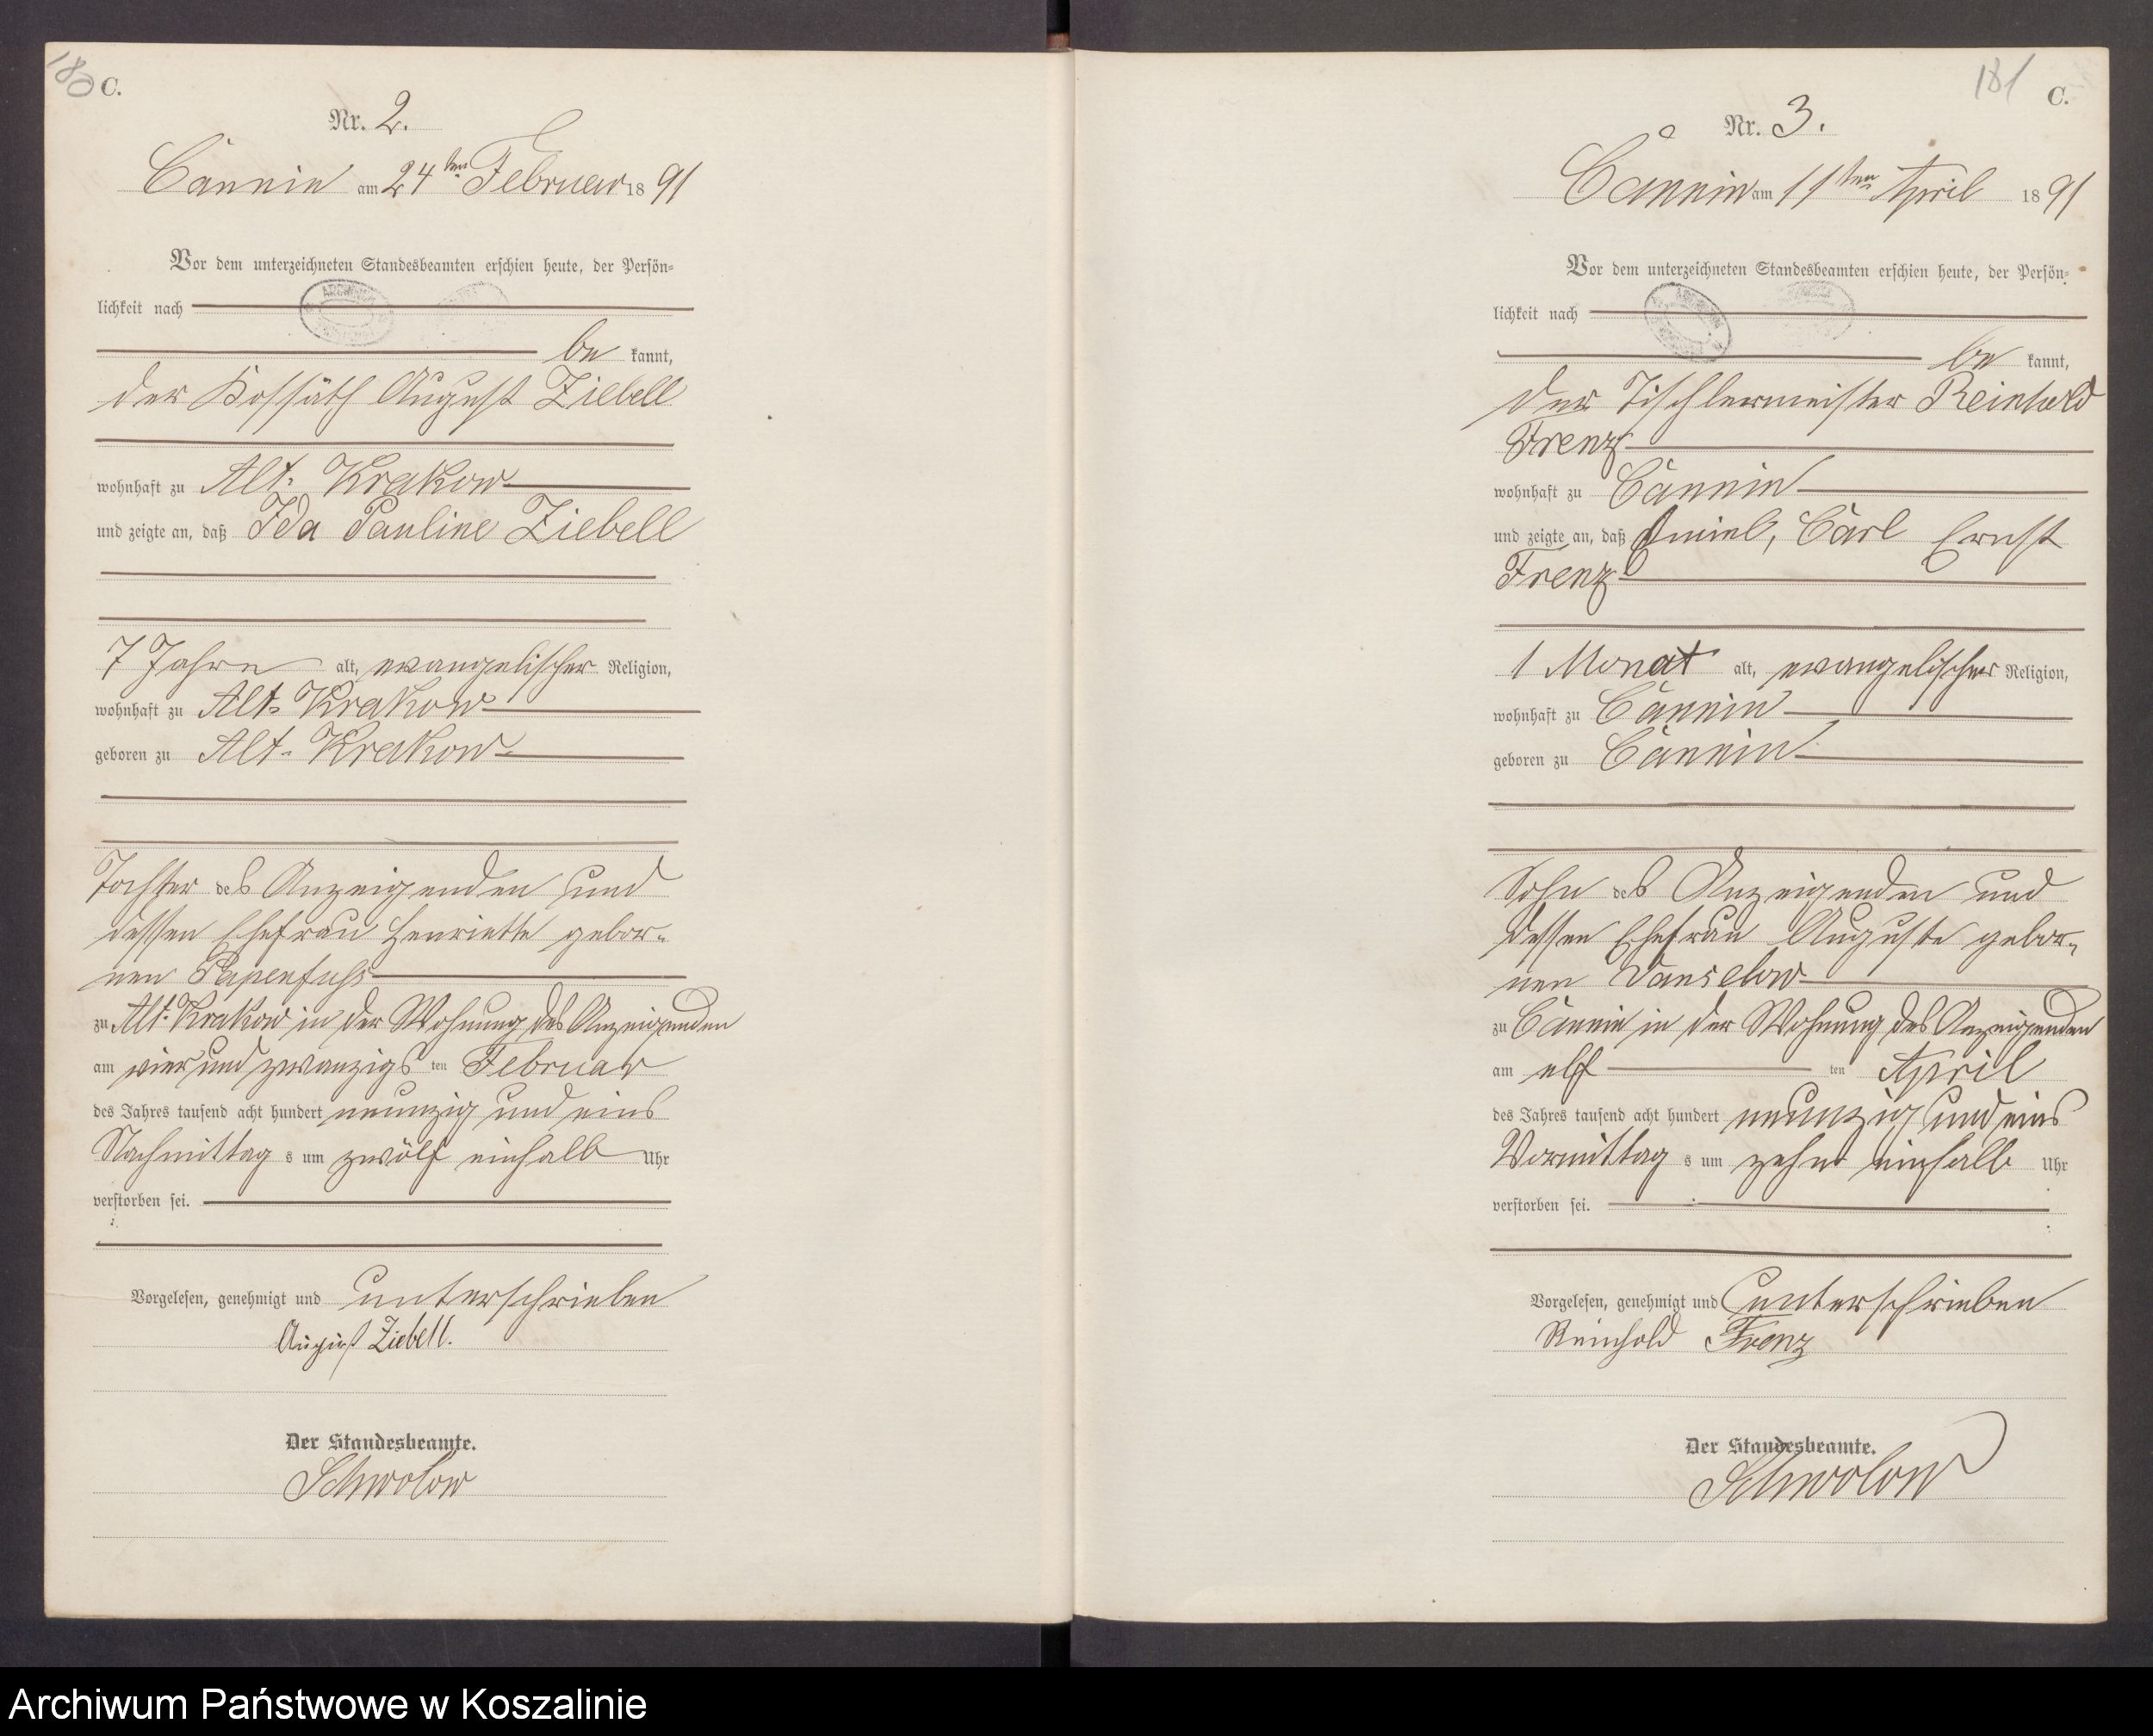 180
C.
Nr. 2.
Cannin am 24ten Februar 1891
Vor dem unterzeichneten Standesbeamten erschien heute, der Persön=
lichkeit nach
be kannt,
der Kossäth August Ziebell
wohnhaft zu Alt-Krakow
und zeigte an, daß Ida Pauline Ziebell
7 Jahre alt, evangelischer Religion,
wohnhaft zu Alt-Krakow
geboren zu Alt-Krakow
Tochter des Anzeigenden und
dessen Ehefrau Henriette gebor-
nen Papenfuß
zu Alt-Krakow in der Wohnung des Anzeigenden
am vier und zwanzigs ten Februar
des Jahres tausend acht hundert neunzig und eins
Nachmittag s um zwölf einhalb Uhr
verstorben sei.
Vorgelesen, genehmigt und unterschrieben
August Ziebell.
Der Standesbeamte.
Schwolow
181
C.
Nr. 3.
Cannin am 11ten April 1891
Vor dem unterzeichneten Standesbeamten erschien heute, der Persön=
lichkeit nach
be kannt,
der Tischlermeister Reinhold
Frenz
wohnhaft zu Cannin
und zeigte an, daß Carl Ernst
Frenz
1 Monat alt, evangelischer Religion,
wohnhaft zu Cannin
geboren zu Cannin
Sohn des Anzeigenden und
dessen Ehefrau Auguste gebor-
nen Vanselow
zu Cannin in der Wohnung des Anzeigenden
am elf ten April
des Jahres tausend acht hundert neunzig und eins
Vormittag s um zehn einhalb Uhr
verstorben sei.
Vorgelesen, genehmigt und unterschrieben
Reinhold Frenz
Der Standesbeamte.
Schwolow
Archiwum Państwowe w Koszalinie